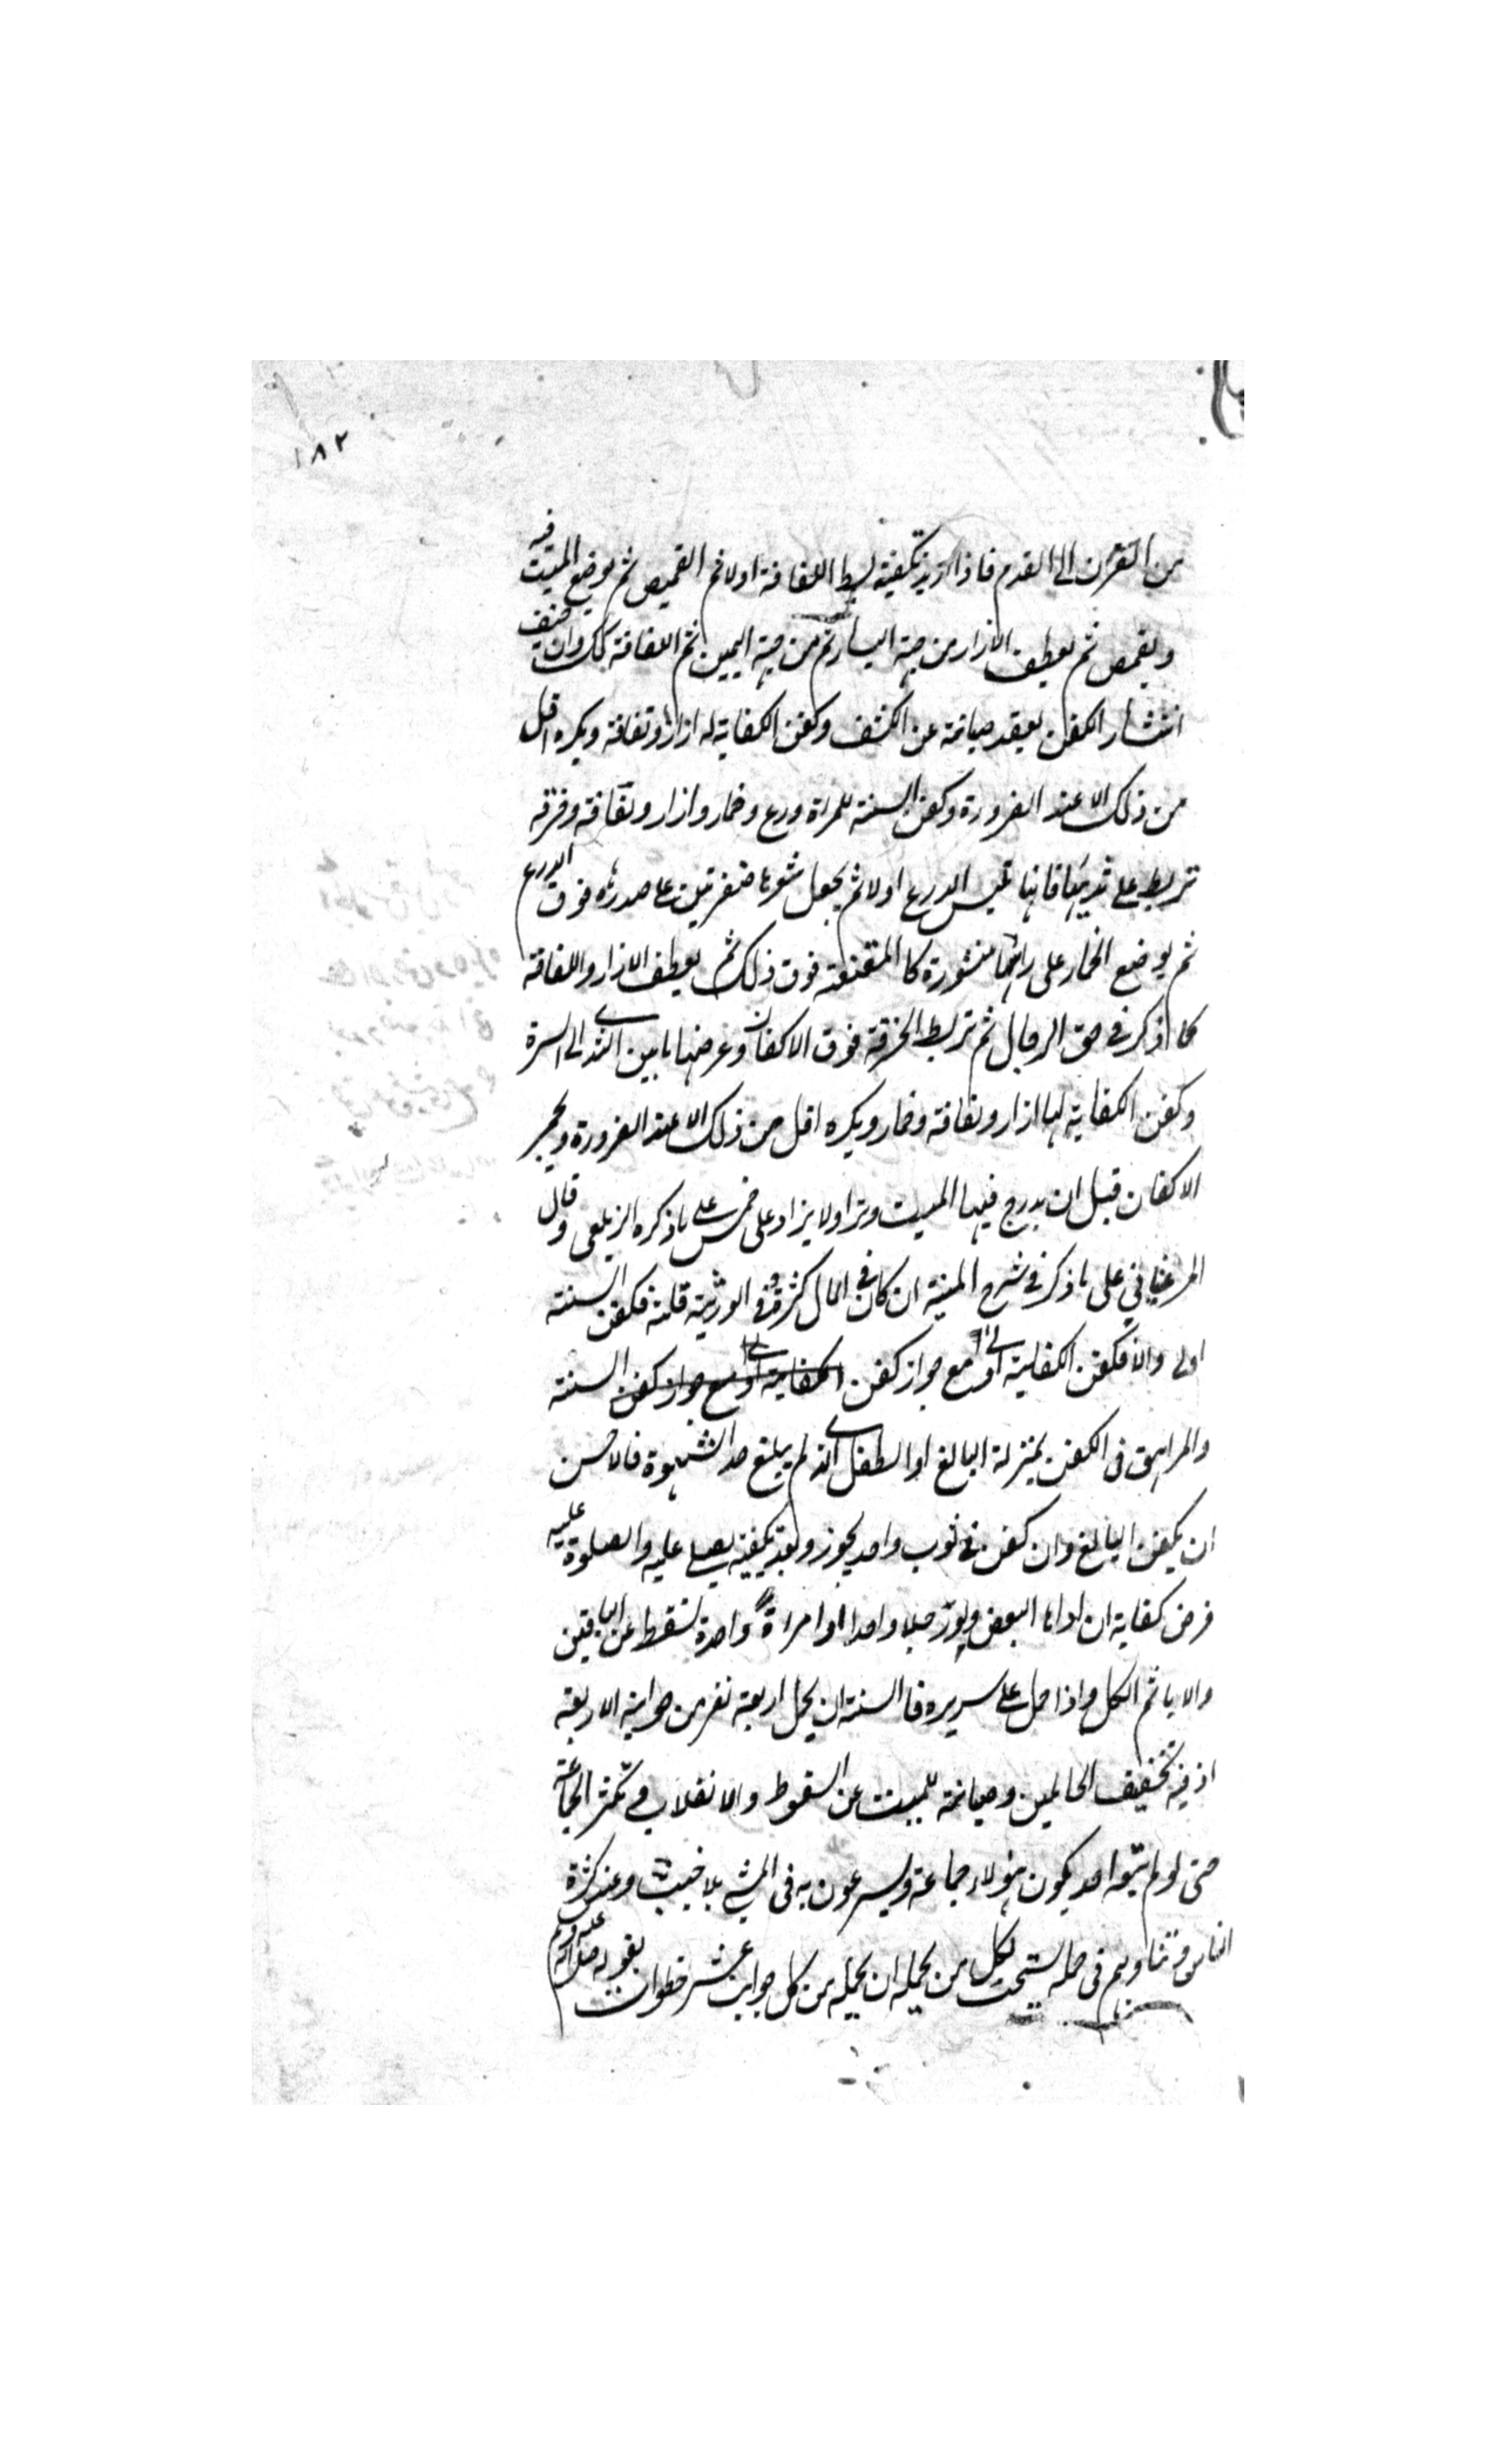 ١٨٢
من القرن الى القدم فاذا اريد تكفينه بسط اللفافة اولا ثم القميص ثم يوضع الميت فيه
ويقمص ثم يعطف الازار من جهة اليسار ثم من جهة اليمين ثم اللفافة كك وان خيف
انتشار الكفن يعقد صيانة عن الكشف وكفن الكفاية له ازار ولفافة ويكره اقل
من ذلك الا عند الضرورة وكفن السنة للمراة درع وخمار وازار ولفافة وخرقة
تربط على ثدييها فانها تلبس الدرع اولا ثم يجعل شعرها ضفرتين على صدرها فوق الدرع
ثم يوضع الخمار على راسها منشورة كالمقنعة فوق ذلك ثم يعطف الازار واللفافة
كما ذكر في حق الرجال ثم تربط الخرقة فوق الاكفان وعرضها ما بين الثدي الى السرة
وكفن الكفاية لها ازار ولفافة وخمار ويكره اقل من ذلك الا عند الضرورة ويجمر
الاكفان قبل ان يدرج فيها الميت وترا ولا يزاد على خمس على ما ذكره الزيلعي وقال
المرغيناني على ما ذكر في شرح المنية ان كان في المال كثرة وفي الورثة قلة فكفن السنة
اولى والا فكفن الكفاية اولى مع جواز كفن الكفاية اولى مع جواز كفن السنة
والمراهق في الكفن بمنزلة البالغ او الطفل الذي لم يبلغ حد الشهوة فالاحسن
ان يكفن البالغ وان كفن في ثوب واحد يجوز وبعد تكفينه يصلى عليه والصلوة عليه
فرض كفاية ان اداها البعض ولو رجلا واحدا او امراة واحدة تسقط عن الباقين
والا ياثم الكل واذا حمل على سريره فالسنة ان يحمل اربعة نفر من جوانبه الاربعة
اذ فيه تخفيف الحاملين وصيانة للميت عن السقوط والانقلاب وتكثر الجماعة
حتى لو لم يتبعه احد يكون هؤلاء جماعة ويسرعون به في المشي بلا خبب وعند كثرة
الناس وتناوبهم في حمله يستحب لكل من يحمله ان يحمله من كل جوانب عشر خطوات لقوله صلى الله عليه وسلم